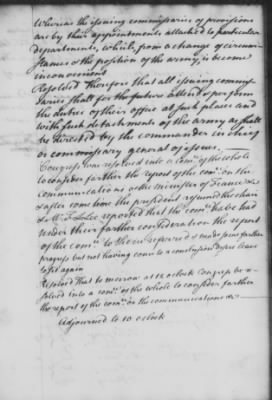 Whereas the issuing commissaries of provisions
are by their appointments attached to particular
departments, which, from a change of circum
stances & the position of the army, is become
inconvenient
Resolved Therefore that all issuing commis
saries shall for the future attend & perform
the duties of their office at such places and
with such detachments of the army as shall
be directed by the commander in chief
or commissary general of issues.
Congress was resolved into a com.ee of the whole
to consider farther the report of the com.ee on the
communications of the minister of France &
& after some time the president resumed the chair
& Mr F. L. Lee reported that the com.ee have had
under their farther consideration the report
of the com.ee to them referred & made some farther
progress but not having come to a conclusion desire leave
to sit again
Resolved That to morrow at 12 o Clock Congress be re
solved into a com.ee of the whole to consider farther
the report of the com.ee on the communications &c
Adjourned to 10 o clock